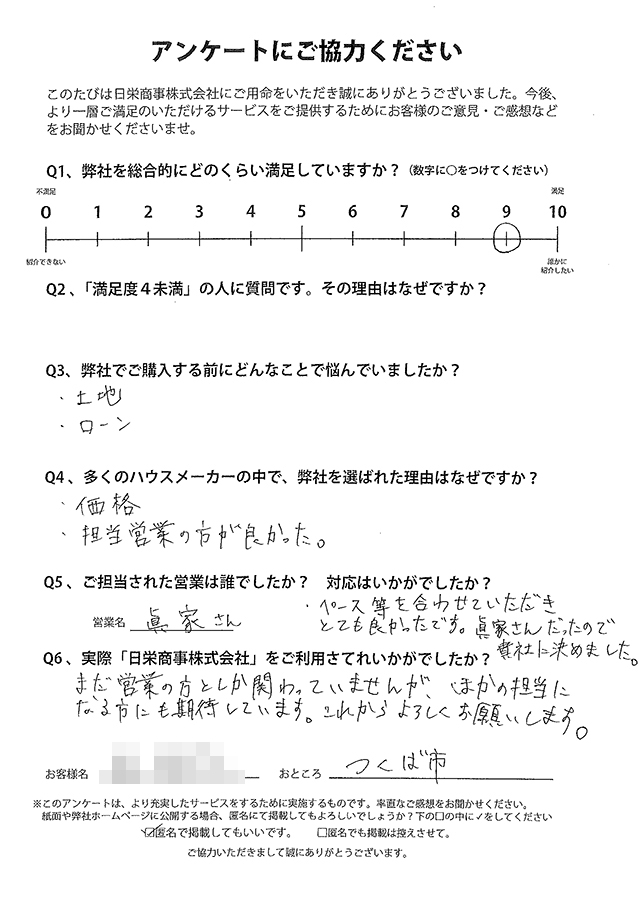 アンケートにご協力ください
このたびは日栄商事株式会社にご用命をいただき誠にありがとうございました。今後、
より一層ご満足のいただけるサービスをご提供するためにお客様のご意見・ご感想など
をお聞かせくださいませ。
Q1、弊社を総合的にどのくらい満足していますか？（数字に○をつけてください）
不満足 満足
0 1 2 3 4 5 6 7 8 9 10
紹介できない 誰かに
紹介したい
Q2、「満足度４未満」の人に質問です。その理由はなぜですか？
Q3、弊社でご購入する前にどんなことで悩んでいましたか？
・土地
・ローン
Q4、多くのハウスメーカーの中で、弊社を選ばれた理由はなぜですか？
・価格
・担当営業の方が良かった。
Q5、ご担当された営業は誰でしたか？ 対応はいかがでしたか？
営業名 眞家さん
・ペース等を合わせていただき
とても良かったです。眞家さんだったので
貴社に決めました。
Q6、実際「日栄商事株式会社」をご利用されてれいかがでしたか？
まだ営業の方としか関わっていませんが、ほかの担当に
なる方にも期待しています。これからよろしくお願いします。
お客様名 おところ つくば市
※このアンケートは、より充実したサービスをするために実施するものです。率直なご感想をお聞かせください。
紙面や弊社ホームページに公開する場合、匿名にて掲載してもよろしいでしょうか？下の口の中に✓をしてください
☑匿名で掲載してもいいです。 □匿名でも掲載は控えさせて。
ご協力いただきまして誠にありがとうございます。